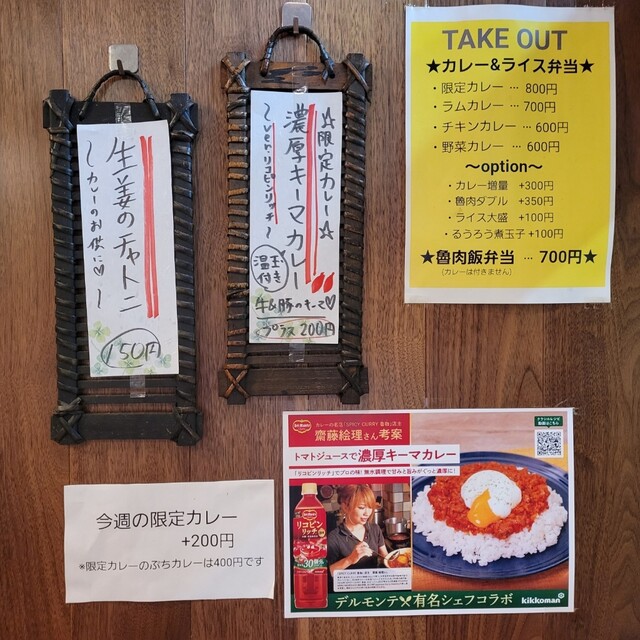 生姜のチャトニ
〜カレーのお供に♡〜
150円
☆限定カレー☆
濃厚キーマカレー
〜ver.リコピンリッチ〜
温玉付き
牛&豚のキーマ♡
プラス200円
TAKE OUT
★カレー&ライス弁当★
・限定カレー … 800円
・ラムカレー … 700円
・チキンカレー … 600円
・野菜カレー … 600円
〜option〜
・カレー増量 +300円
・魯肉ダブル +350円
・ライス大盛 +100円
・るうろう煮玉子 +100円
★魯肉飯弁当 … 700円★
(カレーは付きません)
今週の限定カレー
+200円
※限定カレーのぷちカレーは400円です
Del Monte
齋藤絵理さん考案
トマトジュースで濃厚キーマカレー
「リコピンリッチ」でプロの味!無水調理で甘みと旨みがぐっと濃厚に!
リコピン
リッチ
デルモンテ×有名シェフコラボ
kikkoman